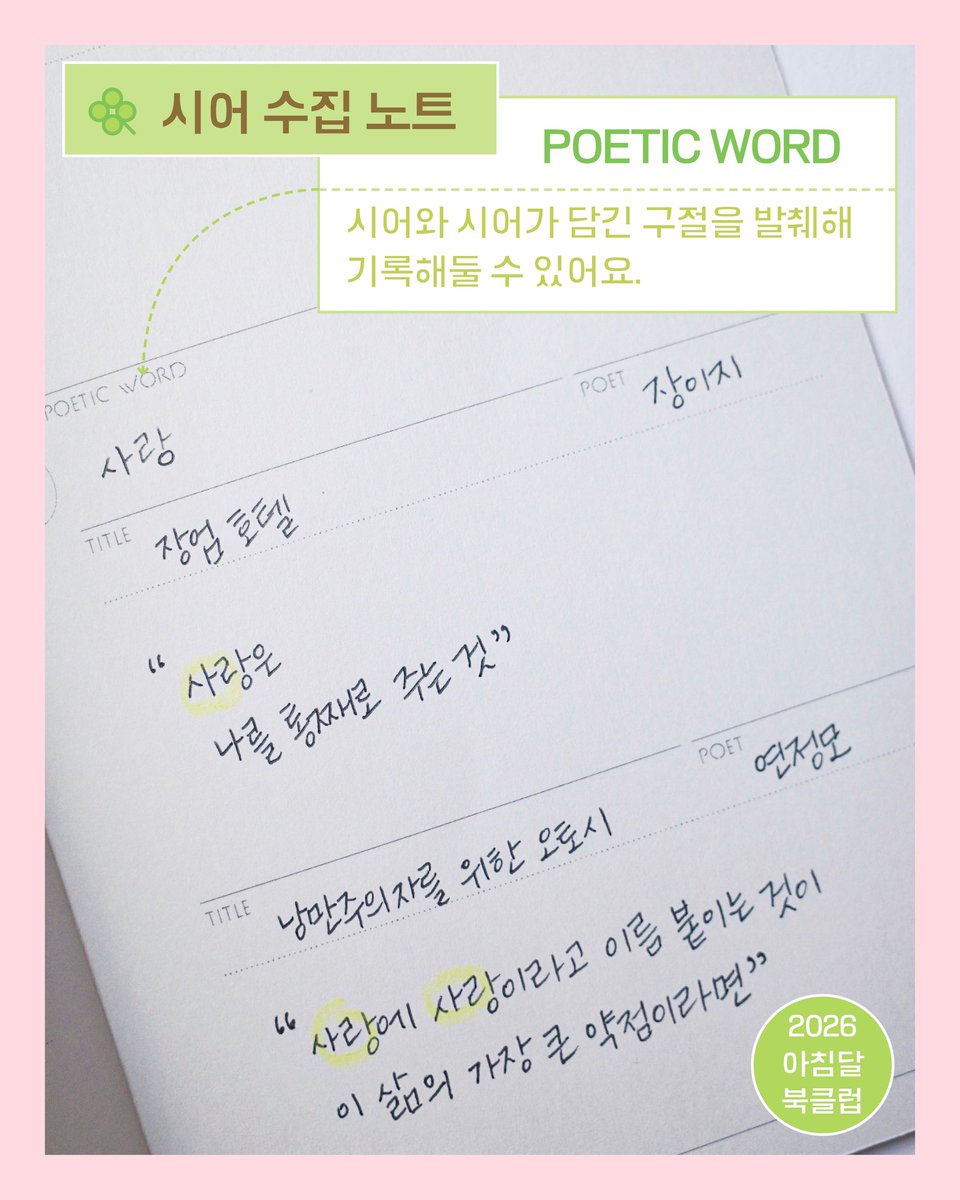 시어 수집 노트
POETIC WORD
시어와 시어가 담긴 구절을 발췌해
기록해둘 수 있어요.
POETIC WORD
사랑
POET 장이지
TITLE 장업 호텔
“사랑은
나를 통째로 주는 것”
POET 연정모
TITLE 낭만주의자를 위한 오토시
“사랑에 사랑이라고 이름 붙이는 것이
이 삶의 가장 큰 약점이라면”
2026
아침달
북클럽